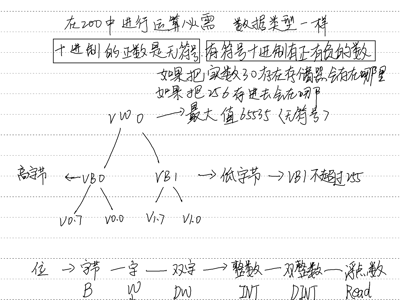 在200中进行运算必需 数据类型一样
十进制的正数是无符号 有符号十进制有正有负的数
如果把1实数30存在存储器会存在哪里
如果把256存进去会在哪
VW0 → 最大值65535（无符号）
高字节 ← VB0 VB1 → 低字节 → VB1不超过255
V0.7 V0.0 V1.7 V1.0
位 → 字节 — 字 — 双字 → 整数 → 双整数 → 浮点数
B W DW INT DINT Read